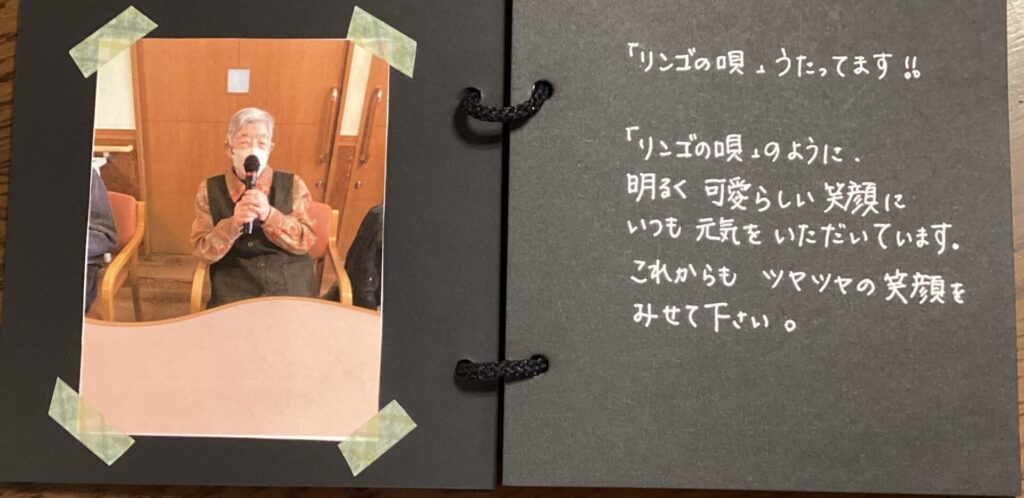 「リンゴの唄」うたってます!!
「リンゴの唄」のように.
明るく 可愛らしい 笑顔に
いつも 元気を いただいています。
これからも ツヤツヤの 笑顔を
みせて下さい。